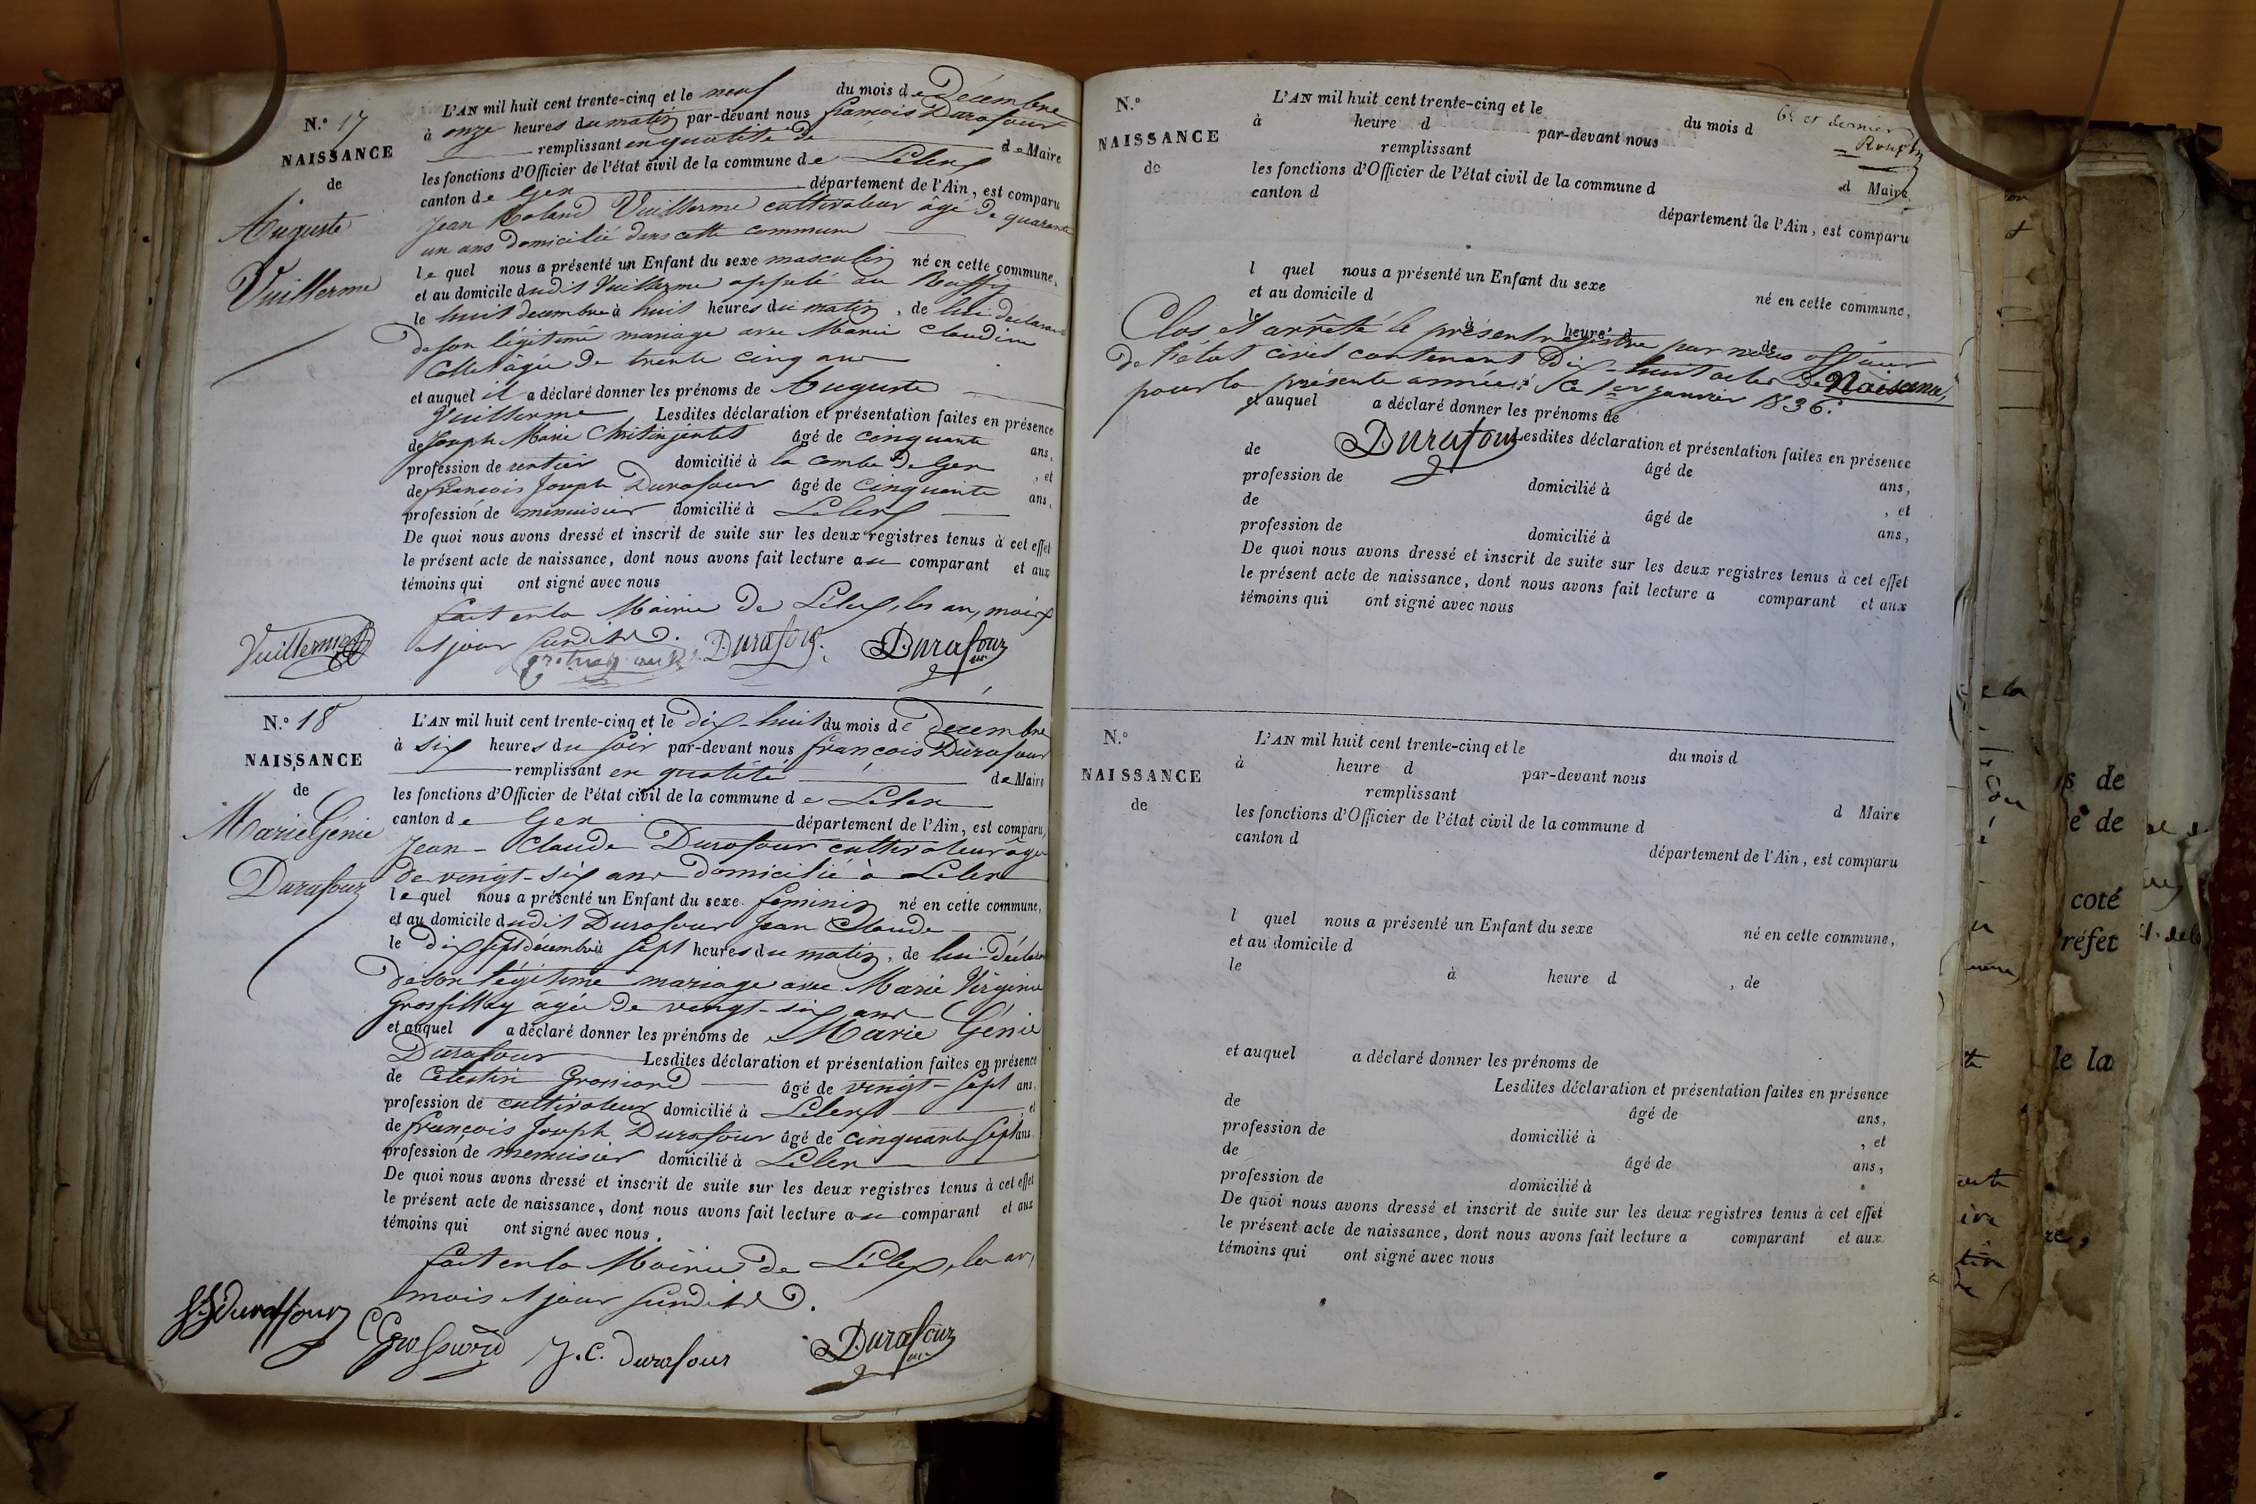 N.° 17
NAISSANCE
de
Auguste
Vuillerme
L'AN mil huit cent trente-cinq et le neuf du mois de Décembre
à onze heures du matin par-devant nous françois Durafour
remplissant en qualité de de Maire
les fonctions d'Officier de l'état civil de la commune de Lélex
canton de Gex département de l'Ain, est comparu
Jean Roland Vuillerme cultivateur âgé de quarante
un ans domicilié dans cette commune
lequel nous a présenté un Enfant du sexe masculin né en cette commune,
et au domicile dudit Vuillerme appelé au
le huit decembre à huit heures du matin, de lui déclarant
de son légitime mariage avec Marie Claudine
âgée de trente cinq ans
et auquel il a déclaré donner les prénoms de Auguste
Vuillerme Lesdites déclaration et présentation faites en présence
de Joseph Marie âgé de cinquante ans,
profession de rentier domicilié à la combe de Gex, et
de francois Joseph Durafour âgé de cinquante ans,
profession de menuisier domicilié à Lélex
De quoi nous avons dressé et inscrit de suite sur les deux registres tenus à cet effet
le présent acte de naissance, dont nous avons fait lecture au comparant et aux
témoins qui ont signé avec nous
fait en la Mairie de Lélex, les an, mois
et jour susdits.
Vuillerme Durafour Durafour
N.° 18
NAISSANCE
de
Marie Génie
Durafour
L'AN mil huit cent trente-cinq et le dix-huit du mois de Decembre
à six heures du soir par-devant nous françois Durafour
remplissant en qualité de Maire
les fonctions d'Officier de l'état civil de la commune de Lélex
canton de Gex département de l'Ain, est comparu,
Jean-Claude Durafour cultivateur âgé
de vingt-six ans domicilié à Lélex
lequel nous a présenté un Enfant du sexe féminin né en cette commune,
et au domicile dudit Durafour Jean Claude
le dix sept décembre à sept heures du matin, de lui déclarant
de son légitime mariage avec Marie Virginie
Grosfilley agée de vingt-six ans
et auquel a déclaré donner les prénoms de Marie Génie
Durafour Lesdites déclaration et présentation faites en présence
de Célestin Grossiord âgé de vingt-sept ans,
profession de cultivateur domicilié à Lélex, et
de françois Joseph Durafour âgé de cinquante sept ans,
profession de menuisier domicilié à Lélex
De quoi nous avons dressé et inscrit de suite sur les deux registres tenus à cet effet
le présent acte de naissance, dont nous avons fait lecture au comparant et aux
témoins qui ont signé avec nous.
fait en la Mairie de Lélex, les an,
mois et jour susdits.
Duraffour C Grossiord J. C. durafour Durafour
6e et dernier
N.°
NAISSANCE
de
L'AN mil huit cent trente-cinq et le du mois d
à heure d par-devant nous
remplissant d Maire
les fonctions d'Officier de l'état civil de la commune d
canton d département de l'Ain, est comparu
l quel nous a présenté un Enfant du sexe né en cette commune,
et au domicile d
le à heure d de
Clos et arrêté le présent registre par nous officier
de l'état civil contenant Dix-huit actes de Naissance,
pour la présente année; Ce 1er janvier 1836.
et auquel a déclaré donner les prénoms de
Durafour
Lesdites déclaration et présentation faites en présence
de âgé de ans,
profession de domicilié à , et
de âgé de ans,
profession de domicilié à
De quoi nous avons dressé et inscrit de suite sur les deux registres tenus à cet effet
le présent acte de naissance, dont nous avons fait lecture a comparant et aux
témoins qui ont signé avec nous
N.°
NAISSANCE
de
L'AN mil huit cent trente-cinq et le du mois d
à heure d par-devant nous
remplissant d Maire
les fonctions d'Officier de l'état civil de la commune d
canton d département de l'Ain, est comparu
l quel nous a présenté un Enfant du sexe né en cette commune,
et au domicile d
le à heure d , de
et auquel a déclaré donner les prénoms de
Lesdites déclaration et présentation faites en présence
de âgé de ans,
profession de domicilié à , et
de âgé de ans,
profession de domicilié à
De quoi nous avons dressé et inscrit de suite sur les deux registres tenus à cet effet
le présent acte de naissance, dont nous avons fait lecture a comparant et aux
témoins qui ont signé avec nous
de
coté
de la